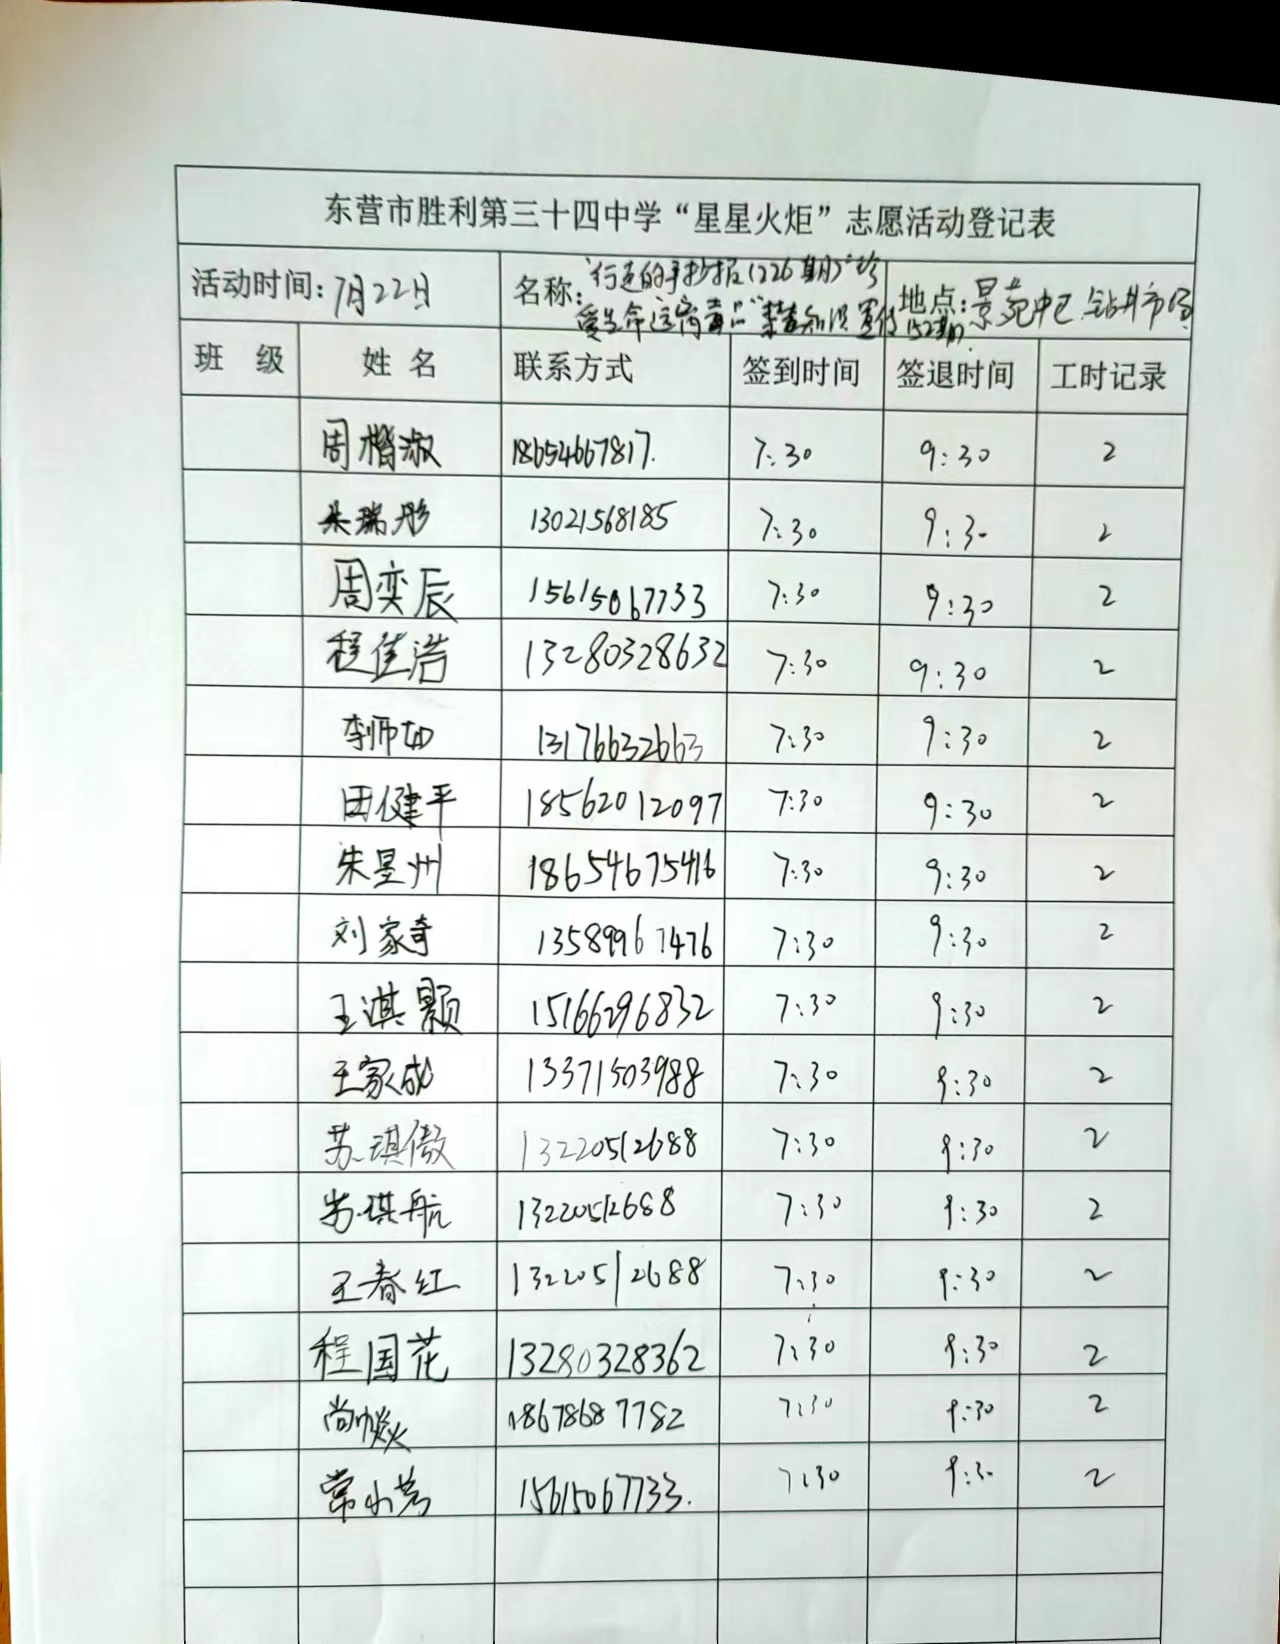 东营市胜利第三十四中学“星星火炬”志愿活动登记表
活动时间:7月22日 名称:"行走的手抄报(226期)"珍爱生命远离毒品"禁毒知识宣传(52期) 地点:景苑中区 钻井市场
班 级 姓 名 联系方式 签到时间 签退时间 工时记录
周楷淑 18654667817. 7:30 9:30 2
朱瑞彤 13021568185 7:30 9:30 2
周奕辰 15615067733 7:30 9:30 2
程佳浩 13280328632 7:30 9:30 2
李师如 13176632663 7:30 9:30 2
田健平 18562012097 7:30 9:30 2
朱星州 18654675416 7:30 9:30 2
刘家奇 13589967476 7:30 9:30 2
王淇颢 15166296832 7:30 9:30 2
王家成 13371503988 7:30 9:30 2
苏琪傲 13220512688 7:30 9:30 2
苏琪航 13220512688 7:30 9:30 2
王春红 13220512688 7:30 9:30 2
程国花 13280328362 7:30 9:30 2
尚 18678687782 7:30 9:30 2
常小芳 15615067733. 7:30 9:30 2